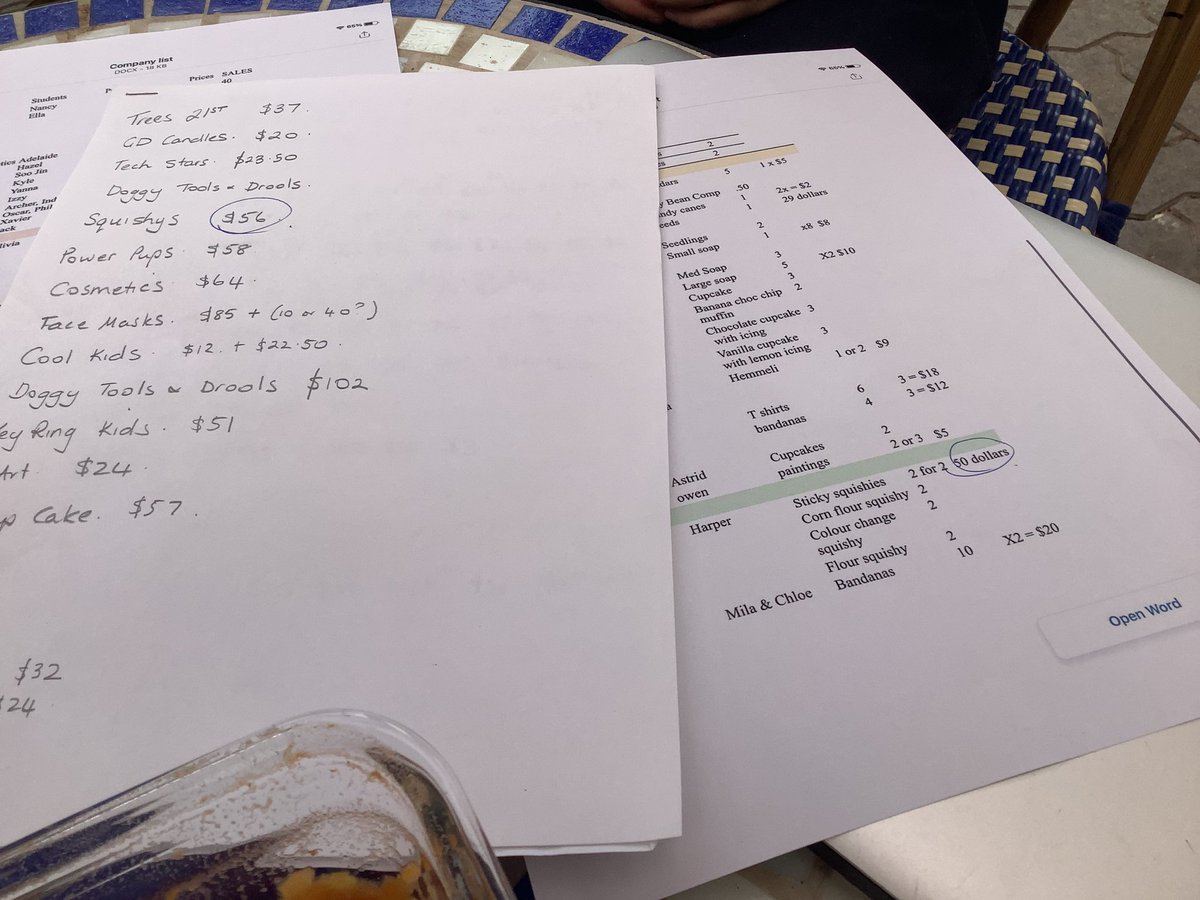 65%
Company list
DOCX - 18 KB
Students
Prices SALES
Nancy
40
Ella
Adelaide
Hazel
Soo Jin
Kyle
Yanna
Izzy
Archer, Ind
Oscar, Phil
Xavier
Trees 21ST $37.
GD Candles. $20.
Tech Stars. $23.50
Doggy Tools & Drools.
Squishys $56.
Power Pups $58
Cosmetics $64.
Face Masks. $85 + (10 or 40?)
Cool Kids. $12. + $22.50.
Doggy Tools & Drools $102
Key Ring Kids. $51
Art $24.
Cake. $57.
$32
$24
2
2
5 1 x $5
Bean Comp 50
canes 1 2x = $2
1 29 dollars
Seedlings 2
Small soap 1 x8 $8
Med Soap 3
Large soap 5 X2 $10
Cupcake 3
Banana choc chip 2
muffin
Chocolate cupcake 3
with icing
Vanilla cupcake 3
with lemon icing
Hemmeli 1 or 2 $9
T shirts 6 3 = $18
bandanas 4 3 = $12
Astrid Cupcakes 2
owen paintings 2 or 3 $5
Harper Sticky squishies 2 for 2 50 dollars
Corn flour squishy 2
Colour change 2
squishy
Flour squishy 2
Mila & Chloe Bandanas 10 X2 = $20
Open Word